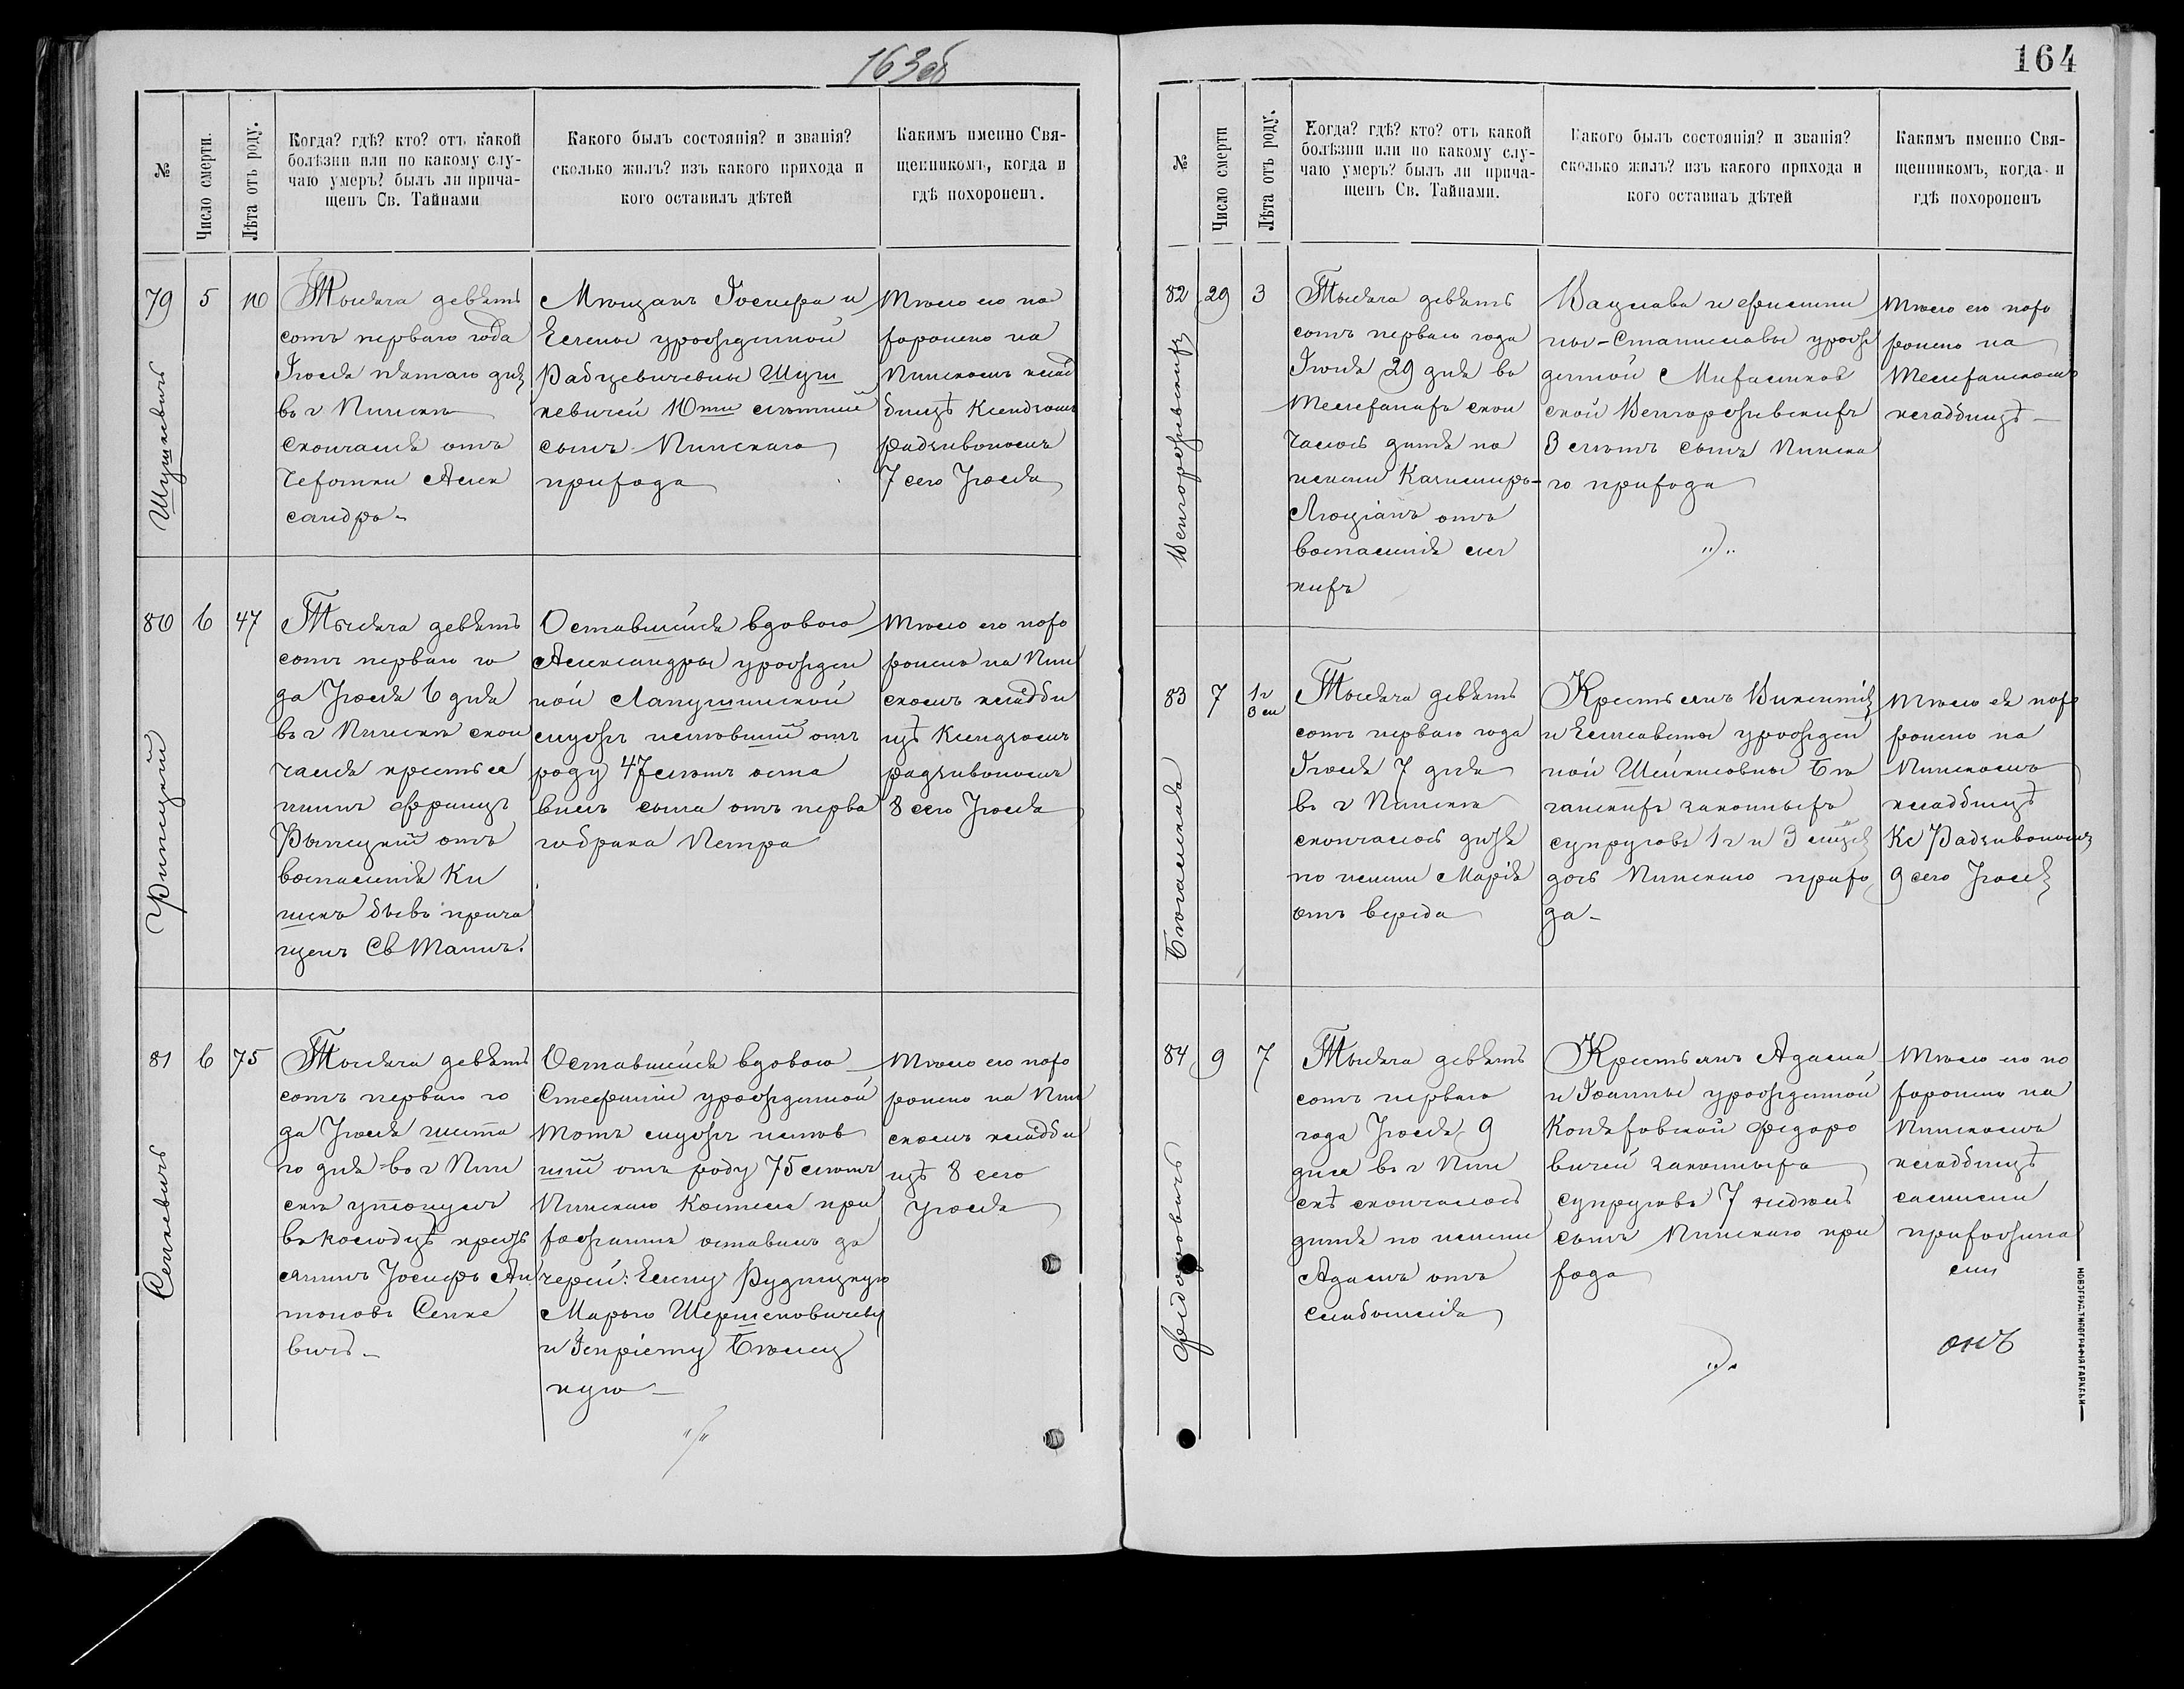 163об
№
Число смерти.
Лѣта отъ роду.
Когда? гдѣ? кто? отъ какой
болѣзни или по какому слу-
чаю умеръ? былъ ли прича-
щенъ Св. Тайнами
Какого былъ состоянія? и званія?
сколько жилъ? изъ какого прихода и
кого оставилъ дѣтей
Какимъ именно Свя-
щенникомъ, когда и
гдѣ похороненъ.
79
5
10
Шушкевичъ
Тысяча девять
сотъ перваго года
Іюля пятаго дня
въ г Пинскѣ
скончался отъ
чехотки Алек
сандръ-
Мѣщанъ Іосифа и
Елены урожденной
Рабцевичевны Шуш
кевичей 10ти лѣтній
сынъ Пинскаго
прихода
Тѣло его по
хоронено на
Пинскомъ клад
бищѣ Ксендзомъ
Радзивономъ
7 сего Іюля
80
6
47
Рыпицкій
Тысяча девять
сотъ перваго го
да Іюля 6 дня
въ г Пинскѣ скон
чался крестья
нинъ Францъ
от
воспаленія Ки
шекъ бывъ прича
щенъ Св Таинъ.
Оставшійся вдовою
Александры урожден
ной Лапушинской
мужъ имѣвшій отъ
роду 47 лѣтъ оста
вилъ сына отъ перва
го брака Петра
Тѣло его похо
ронено на Пин
скомъ кладби
щѣ Ксендзомъ
Радзивономъ
8 сего Іюля
81
6
75
Сенкевичъ
Тысяча девять
сотъ перваго го
да Іюля шеста
го дня въ г Пин
скѣ утонулъ
въ колодцѣ крест
янинъ Іосифъ Ан
тоновъ Сенке
вичъ-
Оставшейся вдовою
Стефаніи урожденной
Тотъ мужъ имѣв
шій отъ роду 75 лѣтъ
Пинскаго Костела при
хожанинъ оставилъ до
черей: Елену Рудницкую
Марью Шершеновичеву
и Генріету
кую-
Тѣло его похо
ронено на Пин
скомъ кладби
щѣ 8 сего
Іюля
164
№
Число смерти
Лѣта отъ роду.
Когда? гдѣ? кто? отъ какой
болѣзни или по какому слу-
чаю умеръ? былъ ли прича-
щенъ Св. Тайнами.
Какого былъ состоянія? и званія?
сколько жилъ? изъ какого прихода и
кого оставилъ дѣтей
Какимъ именно Свя-
щенникомъ, когда и
гдѣ похороненъ
82
29
3
Венгорожевскихъ
Тысяча девять
сотъ перваго года
Іюня 29 дня въ
Телеханахъ скон
чалось дитя по
имени Казимиръ-
Люціанъ отъ
воспаленія лег
кихъ
Вацлава и Фелици
ны-Станиславы урож
денной
ской Венгорожевскихъ
3 лѣтъ сынъ Пинска
го прихода
Тѣло его похо
ронено на
Телеханскомъ
кладбищѣ-
83
7
1г
3 м
Тысяча девять
сотъ перваго года
Іюля 7 дня
въ г Пинскѣ
скончалось дитя
по имени Марія
отъ вереда
Крестьянъ Викентія
и Елисаветы урожден
ной
законныхъ
супруговъ 1 г и 3 мѣся
дочь Пинскаго прихо
да-
Тѣло ея похо
ронено на
Пинскомъ
кладбищѣ
Кс Радзивономъ
9 сего Іюля
84
9
7
Федоровичъ
Тысяча девять
сотъ перваго
года Іюля 9
дня въ г Пин
скѣ скончалось
дитя по имени
Адамъ отъ
слабосилія
Крестьянъ Адама
и Іоанны урожденной
Коляховской Федоро
вичей законныхъ
супруговъ 7 недѣль
сынъ Пинскаго при
хода
Тѣло его по
хоронено на
Пинскомъ
кладбищѣ
самими
прихожана
ми